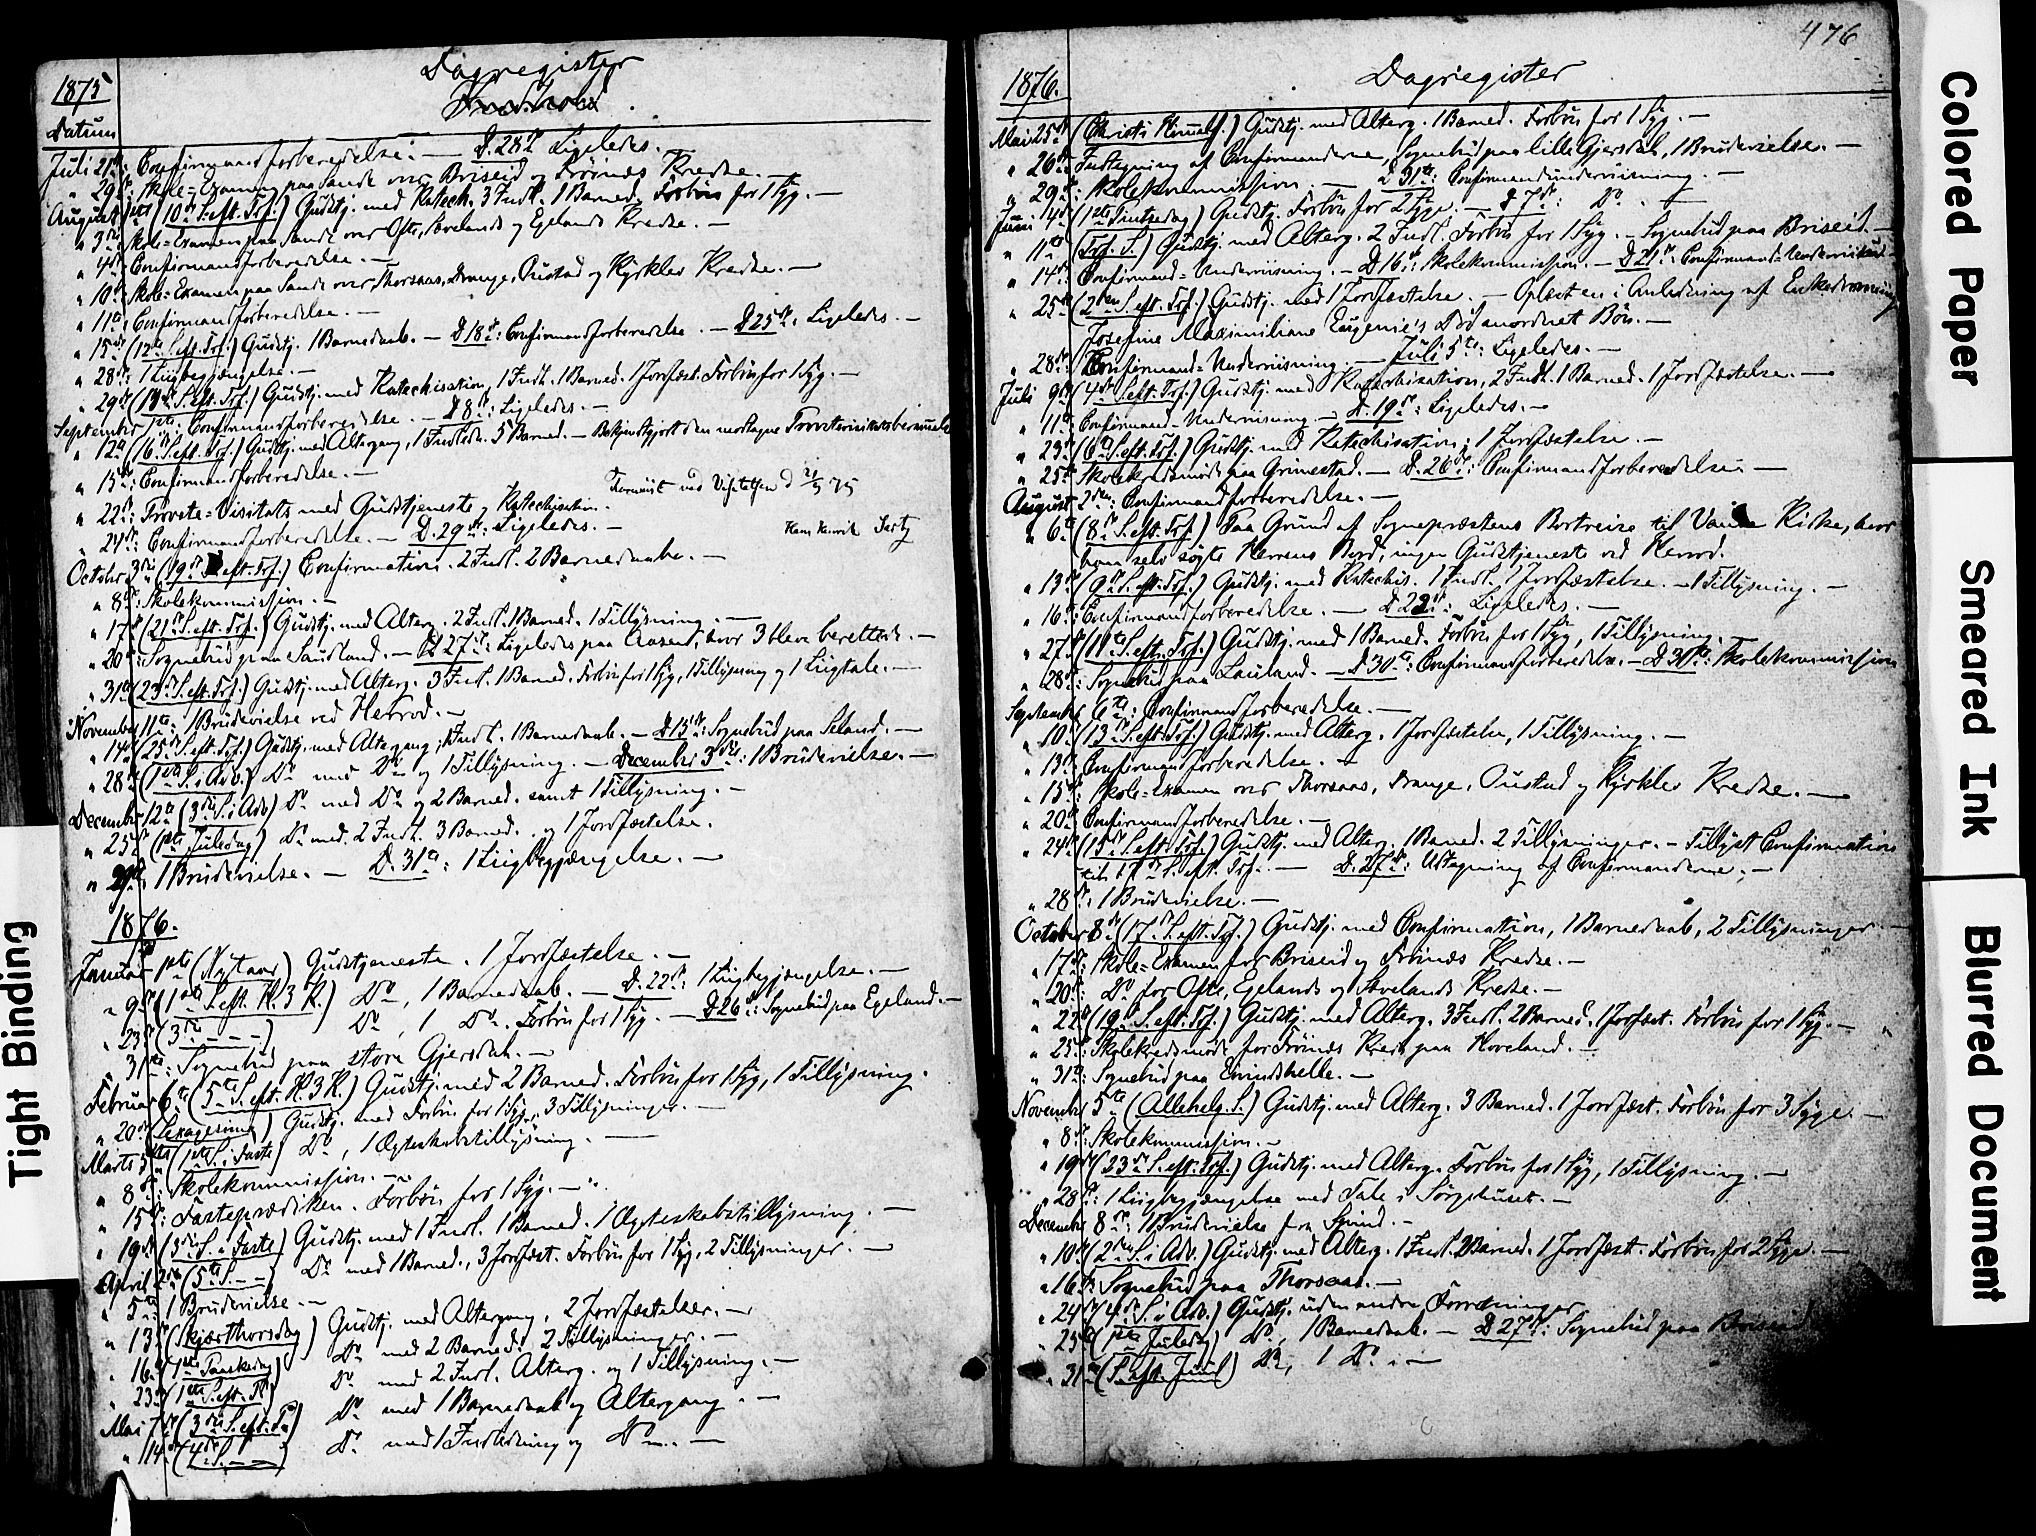 1875
Dagregister
Datum
Juli 21de: Confirmandforberedelse. — D. 28de Ligeledes.
" 29de Skole-Examen paa Sande over Briseid og Frøinæs Kredse. —
August 1ste (10de S. eft. Trf.) Gudstj. med Katech. 3 Indl. 1 Barned. Forbøn for 1 Syg. —
" 3die Skole-Examen paa Sande over Ofte, Stuvelands og Egelands Kredse. —
" 4de Confirmandforberedelse. —
" 10de Skole-Examen paa Sande over Thorsaas, Drange, Oustad og Kirklev Kredse. —
" 11te Confirmandforberedelse. —
" 15de (12te S. eft. Trf.) Gudstj. 1 Barnedaab. — D 18de: Confirmandforberedelse. — D 25de: Ligeledes. —
" 28de: 1 Liigbegjængelse. —
" 29de (14de S. eft. Trf.) Gudstj. med Katechisation, 1 Indl. 1 Barned. 1 Jordfæst. Forbøn for 1 Syg. —
September 1ste: Confirmandforberedelse. — D 8de: Ligeledes. —
" 12te (16de S. eft. Trf.) Gudstj. med Altergang, 1 Indledn. 5 Barned. — Bekjendtgjort den modtagne Provstevisitatsberammelse
" 15de: Confirmandforberedelse. —
" 22de: Provste-Visitats med Gudstjeneste og Katechisation.
Foreviist ved Visitatsen d 22/9 75
" 24de: Confirmandforberedelse. — D. 29de: Ligeledes. —
October 3die (19de S. eft. Trf.) Confirmation. 2 Indl. 2 Barnedaabe. —
" 8de: Skolekommission. —
" 17de (21de S. eft. Trf.) Gudstj. med Alterg. 2 Indl. 1 Barned. 1 Tillysning. —
" 20de: Sognebud paa Sandland. — D 27de: Ligeledes paa Aasen, hvor 3 blev berettede. —
" 31te (23de S. eft. Trf.) Gudstj. med Alterg. 3 Indl. 1 Barned. Forbøn for 1 Syg, 1 Tillysning og 1 Liigtale. —
November 11te: 1 Brudevielse ved Herrød. —
" 14de (25de S. eft. Trf.) Gudstj. med Altergang, 1 Indl. 1 Barnedaab. — D 15de: Sognebud paa Seland. —
" 28de (1ste S. i Adv.) Do med Do og 1 Tillysning. — December 3die: 1 Brudevielse. —
December 12te (3die S. i Adv) Do med Do og 2 Barned. samt 1 Tillysning. —
" 25de (1ste Juledag) Do med 2 Indl. 3 Barned. og 1 Jordfæstelse.
" 29de: 1 Brudevielse. — D. 31te: 1 Liigbegjængelse. —
1876.
Januar 1ste (Nytaar) Gudstjeneste. 1 Jordfæstelse. —
" 9de (1ste S. eft. H. 3 K.) Do, 1 Barnedaab. — D. 22de: 1 Liigbegjængelse. —
" 23de (3die — — —) Do, 1 Do. Forbøn for 1 Syg. — D 26de: Sognebud paa Egeland. —
" 31te: Sognebud paa store Gjersdal. —
Februar 6te (5te S. eft. H. 3 K.) Gudstj. med 2 Barned. Forbøn for 1 Syg, 1 Tillysning.
" 20de (Sexagesima) Gudstj. med Forbøn for 1 Syg, 3 Tillysninger. —
Marts 5te (1ste S. i Faste) Do, 1 Ægteskabstillysning. —
" 8de: Skolekommission. —
" 15de: Fasteprædiken. Forbøn for 1 Syg. —
" 19de (3die S. i Faste) Gudstj. med 1 Indl. 1 Barned. 1 Ægteskabstillysning. —
April 2den (5te S. — —) Do med 1 Barned., 3 Jordfæst. Forbøn for 1 Syg, 2 Tillysninger. —
" 5te 1 Brudevielse. —
" 13de (Skjærthorsdag) Gudstj. med Altergang, 2 Jordfæstelser. —
" 16de (1ste Paaskedag) Do med 2 Barned. 2 Tillysninger. —
" 23de (1ste S. eft. P) Do med 2 Indl. Alterg. og 1 Tillysning. —
Mai 7de (3die S. eft. P) Do med 1 Barnedaab og Altergang. —
" 14de (4de S. — —) Do med 1 Indledning og Do. —
476
1876.
Dagregister
Mai 25de (Christi Himmelf.) Gudstj. med Alterg. 1 Barned. Forbøn for 1 Syg. —
" 26de Indtegning af Confirmanderne, Sognebud paa lille Gjersdal, 1 Brudevielse. —
" 29de: Skolekommission. — D 31te: Confirmandunderviisning. —
Juni 4de (1ste Pintsedag) Gudstj. Forbøn for 2 Syge. — D 7de: Do. —
" 11te (Trf. S.) Gudstj. med Alterg. 2 Indl. Forbøn for 1 Syg. — Sognebud paa Briseid. —
" 14de: Confirmand-Underviisning. — D 16de: Skolekommission. — D 21de: Confirmand-Underviisning —
" 25de (2den S. eft. Trf.) Gudstj. med 1 Jordfæstelse. — Oplæst en i Anledning af Enkedronning
Josefine Maximiliane Eugenie's Død anordnet Bøn. —
" 28de Confirmand-Underviisning. — Juli 5te: Ligeledes. —
Juli 9de (4de S. eft. Trf.) Gudstj. med Katechisation, 2 Indl. 1 Barned. 1 Jordfæstelse. —
" 11te Confirmand-Underviisning — D. 19de: Ligeledes. —
" 23de (6te S. eft. Trf.) Gudstj. med Katechisation; 1 Jordfæstelse. —
" 25de Skolekredsmøde paa Grimestad. — D. 26de: Confirmandforberedelse. —
August 2den: Confirmandforberedelse. —
" 6te (8de S. eft. Trf.) Paa Grund af Sognepræstens Bortreise til Vanse Kirke, hvor
han selv søgte Herrens Bord, ingen Gudstjeneste ved Herrød.
" 13de (9de S. eft. Trf.) Gudstj. med Katechis. 1 Indl. 1 Jordfæstelse. — 1 Tillysning. —
" 16de: Confirmandforberedelse. — D 22de: Ligeledes. —
" 27de (11te S. eft. Trf.) Gudstj. med 1 Barned. Forbøn for 1 Syg, 1 Tillysning.
" 28de: Sognebud paa Lauland. — D 30te: Confirmandforberedelse. — D 30te: Skolekommission
September 6te: Confirmandforberedelse. —
" 10de (13de S. eft. Trf.) Gudstj. med Alterg. 1 Jordfæstelse, 1 Tillysning. —
" 13de: Confirmandforberedelse. —
" 15de: Skole-Examen over Thorsaas, Drange, Oustad og Kirklev Kredse. —
" 20de: Confirmandforberedelse. —
" 24de (15de S. eft. Trf.) Gudstj. med Alterg. 1 Barned. 2 Tillysninger. — Tillyst Confirmation
til 17de S. eft. Trf. — D. 27de: Udtagning af Confirmanderne. —
" 28de: 1 Brudevielse. —
October 8de (17de S. eft. Trf.) Gudstj. med Confirmation, 1 Barnedaab, 2 Tillysninger. —
" 17de: Skole-Examen for Briseid og Frøinæs Kredse. —
" 20de: Do for Ofte, Egelands og Stuvelands Kredse. —
" 22de (19de S. eft. Trf.) Gudstj. med Alterg. 3 Indl. 2 Barned. 1 Jordfæst. Forbøn for 1 Syg. —
" 25de: Skolekredsmøde for Frøinæs Kreds paa Hoveland. —
" 31te: Sognebud paa Eivindshelle. —
November 5te (Allehelg. S.) Gudstj. med Alterg. 3 Barned. 1 Jordfæst. Forbøn for 3 Syge —
" 8de: Skolekommission. —
" 19de (23de S. eft. Trf.) Gudstj. med Alterg. Forbøn for 1 Syg, 1 Tillysning. —
" 28de: 1 Liigbegjængelse med Tale i Sørgehuset. —
December 8de: 1 Brudevielse fra Spind. —
" 10de (2den S. i Adv.) Gudstj. med Alterg. 1 Indl. 2 Barned. 1 Jordfæst. Forbøn for 2 Syge. —
" 16de Sognebud paa Thorsaas. —
" 24de (4de S. i Adv.) Gudstj. uden andre Forretninger
" 25de (1ste Juledag) Do, 1 Barnedaab. — D 27de: Sognebud paa Briseid
" 31te (S. eft. Juul) Do, 1 Do. —
Tight Binding
Colored Paper
Smeared Ink
Blurred Document